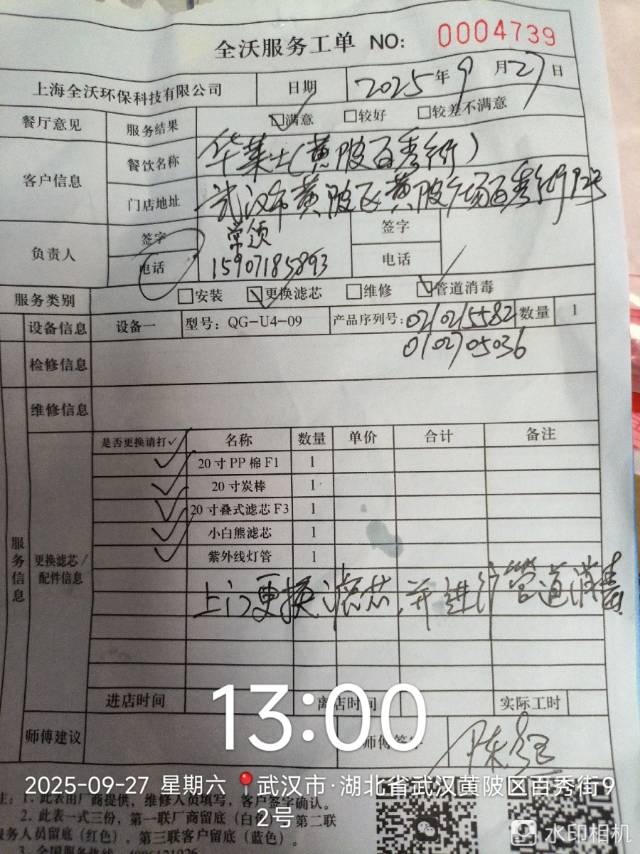 全沃服务工单 NO: 0004739
上海全沃环保科技有限公司 日期 2025年9月27日
餐厅意见 服务结果 ☑满意 □较好 □较差不满意
客户信息 餐饮名称 华莱士(黄陂百秀街)
门店地址 武汉市黄陂区黄陂广场百秀街92号
负责人 签字 签字
电话 15907185893 电话
服务类别 □安装 ☑更换滤芯 □维修 ☑管道消毒
设备信息 设备一 型号: QG-U4-09 产品序列号: 0210215582 数量 1
0102705036
检修信息
维修信息
服务信息
更换滤芯/配件信息
是否更换请打✓ 名称 数量 单价 合计 备注
✓ 20寸PP棉F1 1
✓ 20寸炭棒 1
✓ 20寸叠式滤芯F3 1
✓ 小白熊滤芯 1
✓ 紫外线灯管 1
上门更换滤芯,并进行管道消毒
进店时间 离店时间 实际工时
13:00
师傅建议 师傅签字
2025-09-27 星期六 武汉市·湖北省武汉黄陂区百秀街92号
注: 1、此表由厂商提供, 维修人员填写, 客户签字确认。
2、此表一式三份, 第一联厂商留底(白色) 第二联
服务人员留底(红色), 第三联客户留底(蓝色)。
3、全国服务热线
水印相机